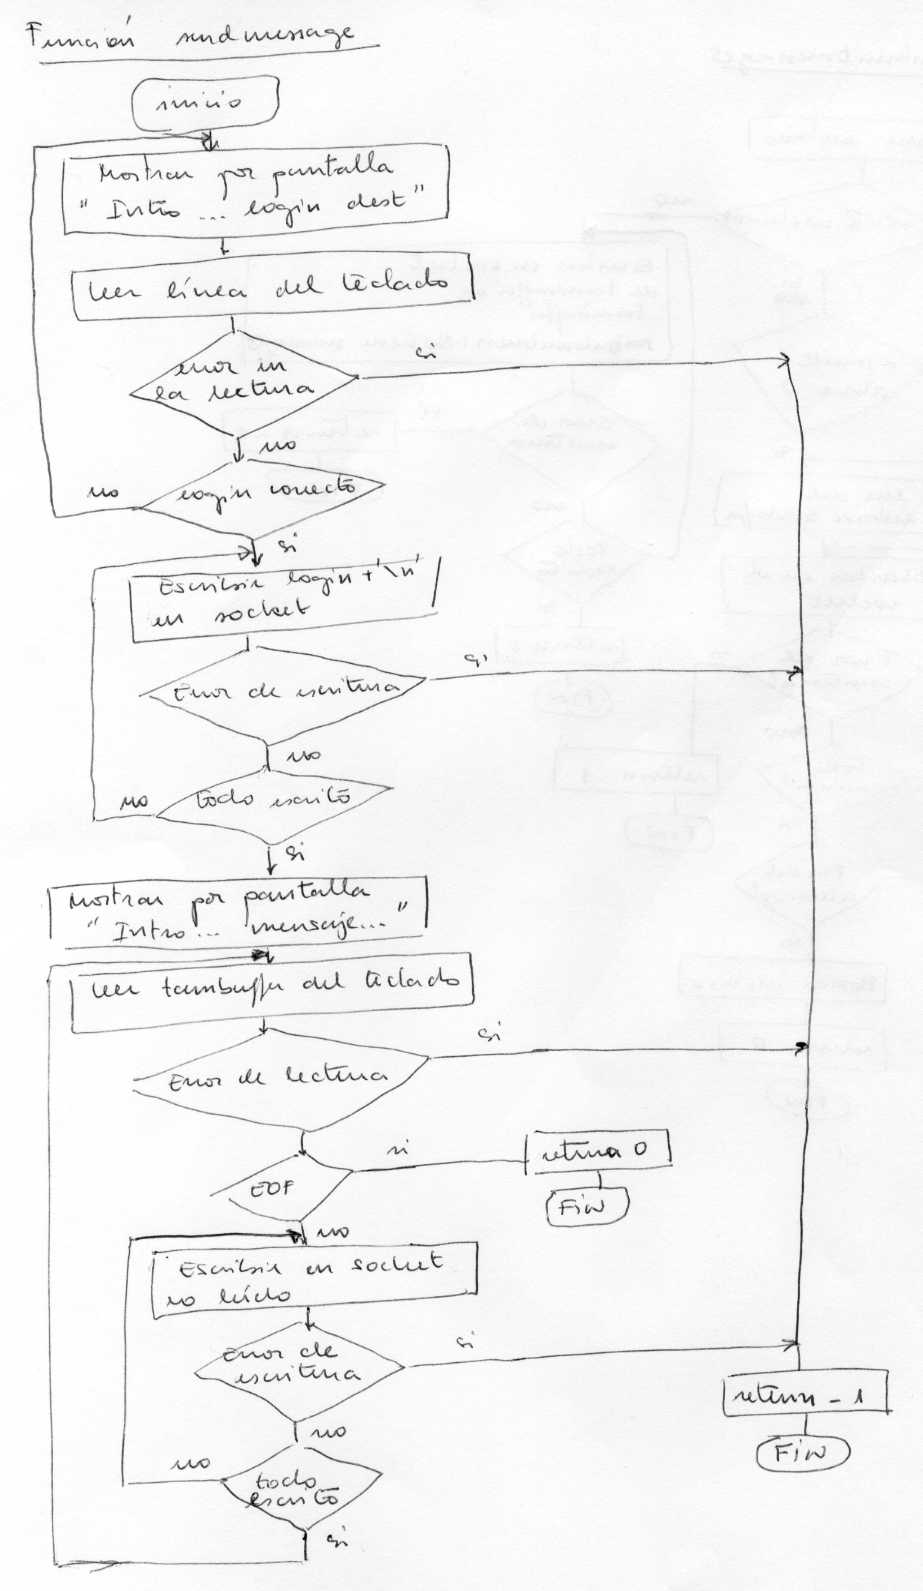 Función sendmessage
inicio
Mostrar por pantalla
" Intro ... login dest"
leer línea del teclado
error en
la lectura
si
no
login correcto
no
si
Escribir login + '\n'
en socket
Error de escritura
si
no
todo escrito
no
si
Mostrar por pantalla
" Intro... mensaje... "
leer tambuffer del teclado
Error de lectura
si
EOF
si
return 0
Fin
no
Escribir en socket
lo leído
Error de
escritura
si
no
return -1
Fin
todo
escrito
no
si